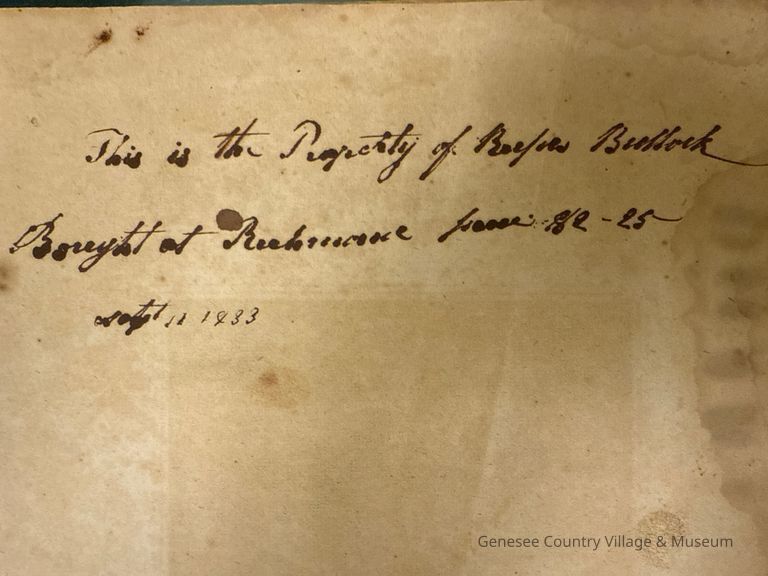 This is the Property of Bullock
Bought at Richmond 2 - 25
sept 11 1833
Genesee Country Village & Museum